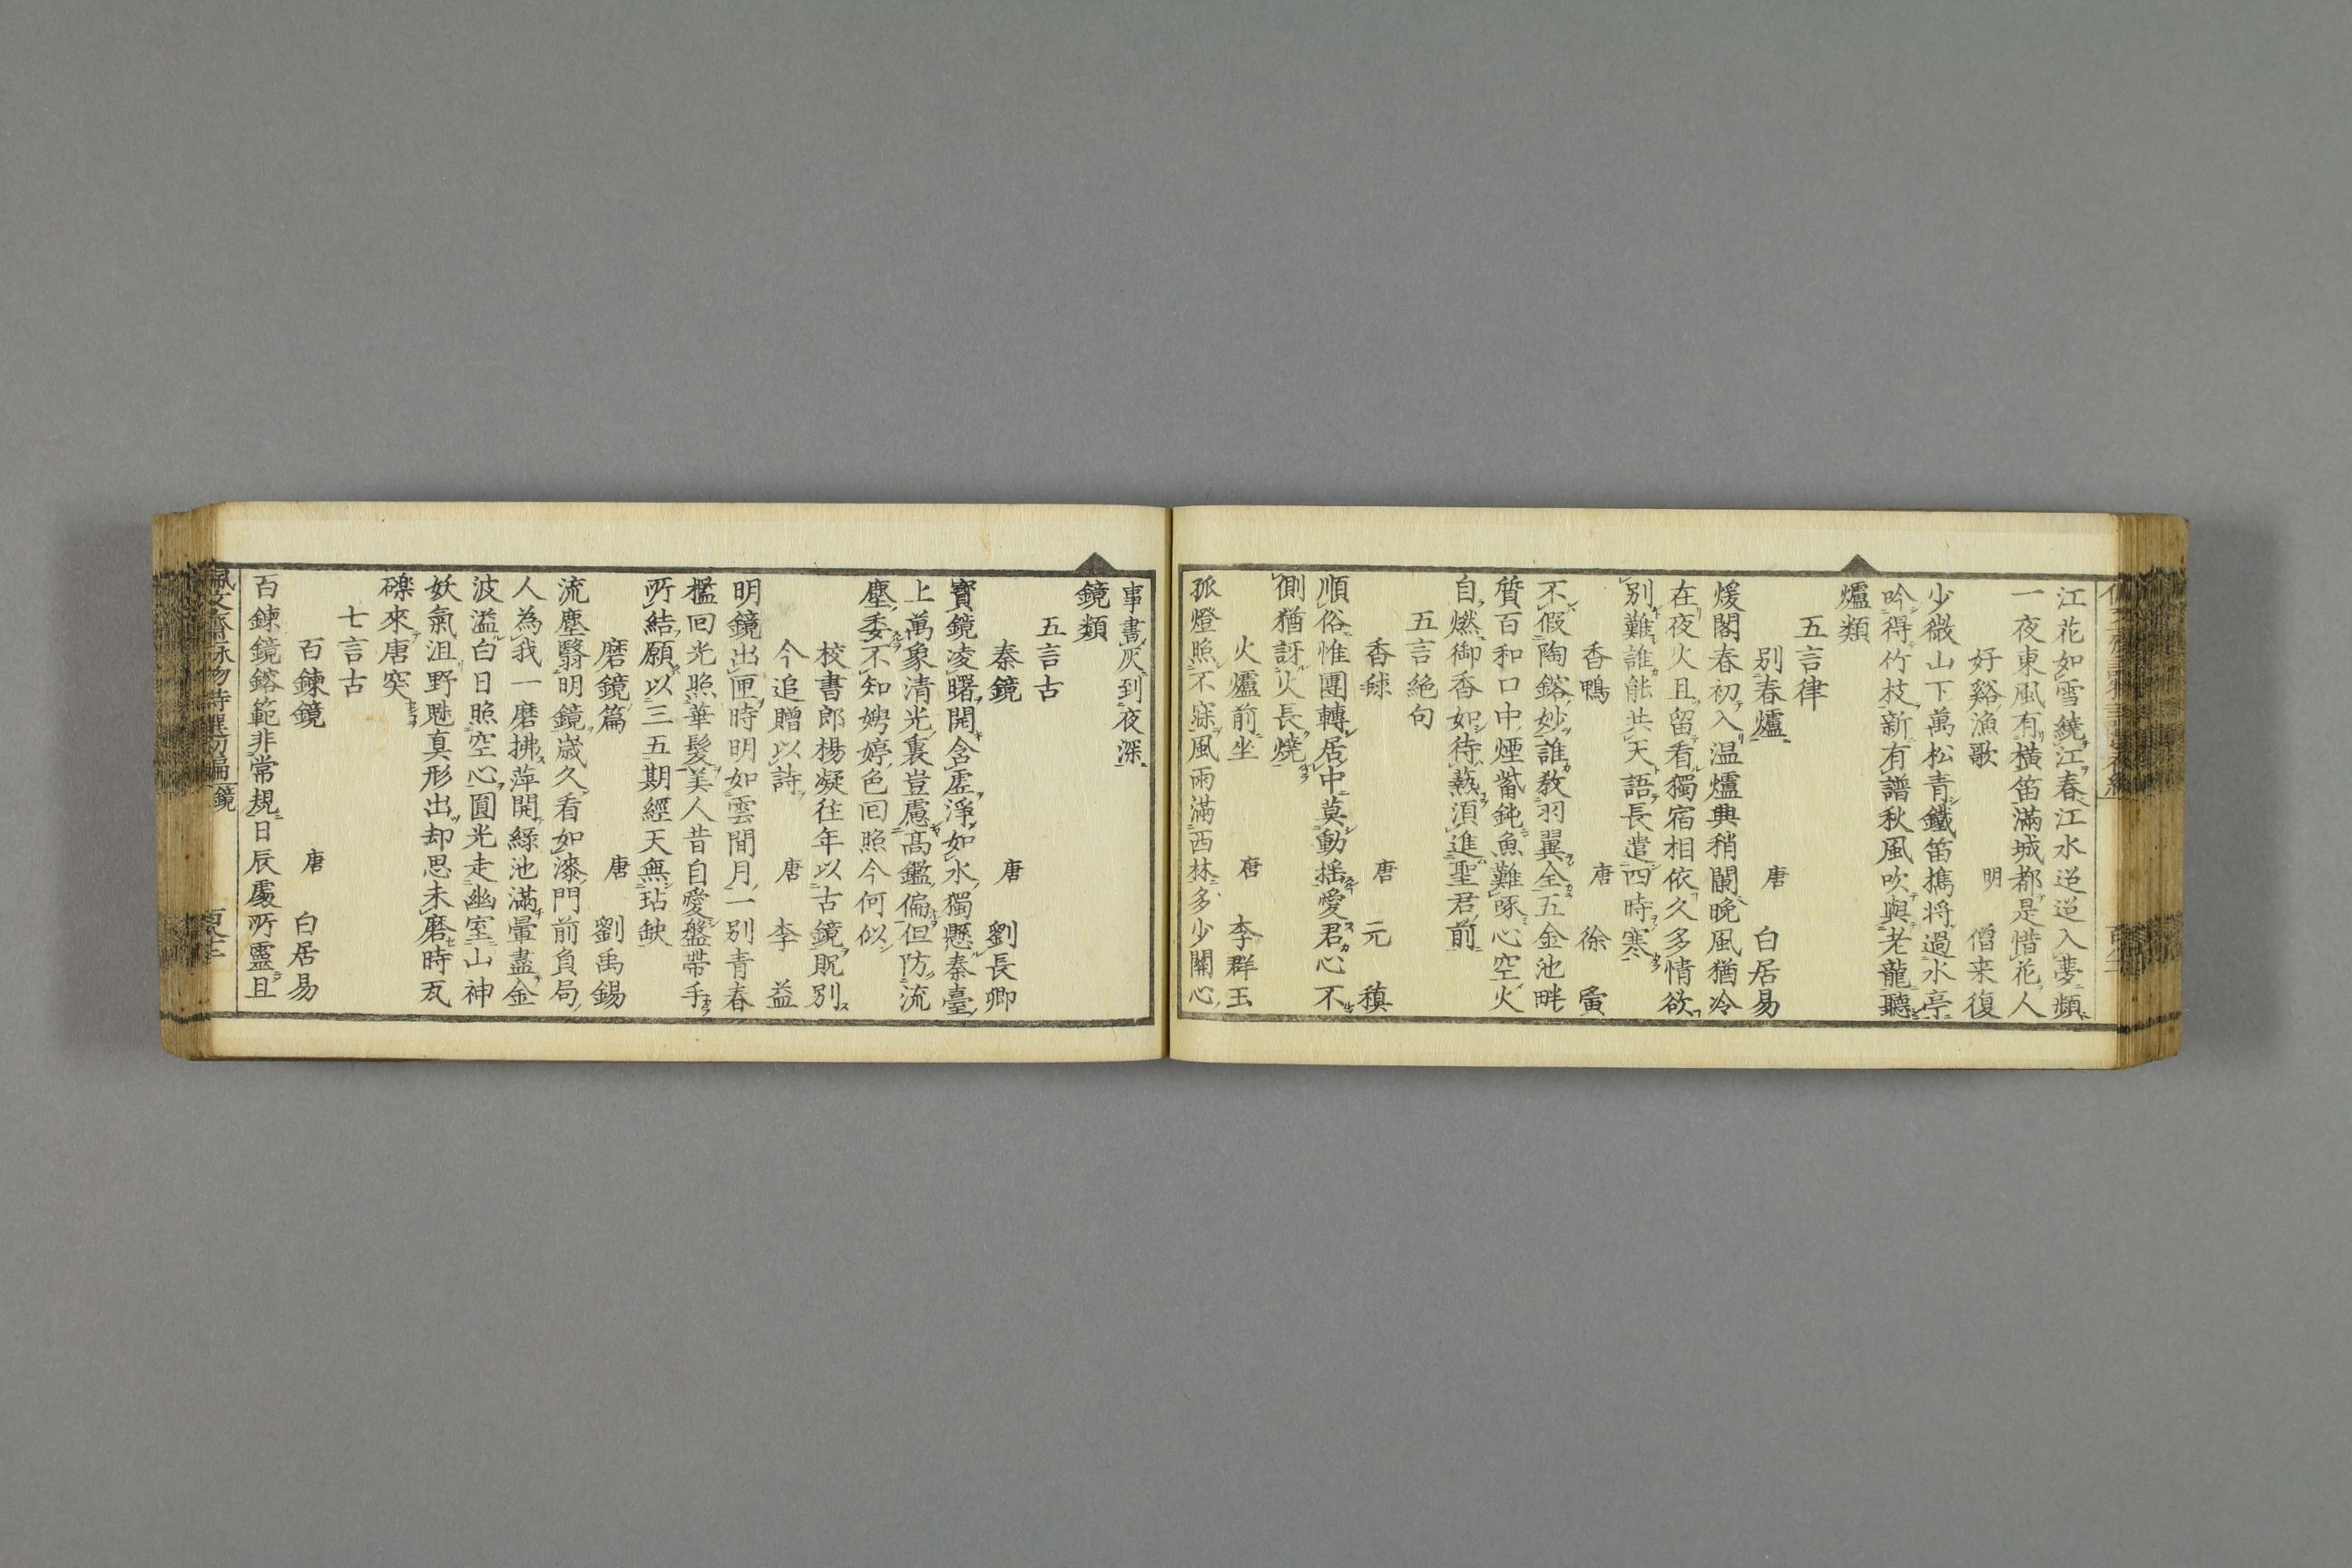 江花如雪繞江春江水迢迢入夢頻
一夜東風有橫笛滿城都是惜花人
好谿漁歌 明 僧来復
少微山下萬松青鐵笛携將過水亭
吟得竹枝新有譜秋風吹與老龍聽
爐類
五言律
別春爐 唐 白居易
煖閣春初入温爐興稍闌晩風猶冷
在夜火且留看獨宿相依久多情欲
別難誰能共天語長遣四時寒
香鴨 唐 徐 夤
不假陶鎔妙誰教羽翼全五金池畔
質百和口中煙觜鈍魚難啄心空火
自燃御香如待爇須進聖君前
五言絶句
香毬 唐 元 稹
順俗惟團轉居中莫動揺愛君心不
側猶訝火長燒
火爐前坐 唐 李群玉
孤燈照不寐風雨滿西林多少關心
事書灰到夜深
鏡類
五言古
秦鏡 唐 劉長卿
寳鏡凌曙開含虚淨如水獨懸秦臺
上萬象清光裏豈慮髙鑑偏但防流
塵委不知娉婷色回照今何似
校書郎楊凝往年以古鏡貺別
今追贈以詩 唐 李 益
明鏡出匣時明如雲間月一別青春
檻回光照華髮美人昔自愛鞶帯手
所結願以三五期經天無玷缺
磨鏡篇 唐 劉禹錫
流塵翳明鏡歳久看如漆門前負局
人為我一磨拂萍開綠池滿暈盡金
波溢白日照空心圓光走幽室山神
妖氣沮野魅真形出却思未磨時瓦
礫來唐突
七言古
百鍊鏡 唐 白居易
百鍊鏡鎔範非常規日辰處所靈且
佩文齋詠物詩選初編 鏡